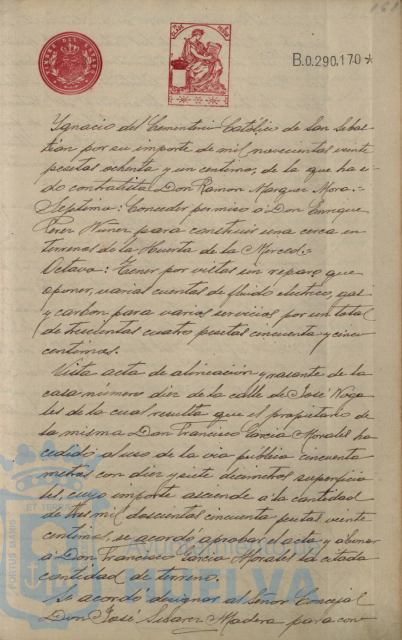 B.0.290,170*
Ygnacio del Cementerio Católico de San Sebas-
tián por su importe de mil novecientas veinte
pesetas ochenta y un centimos, de la que ha si-
do contratista Don Ramon Marquez Mora.-
Septimo: Conceder permiso á Don Enrique
Perez Nuñez para construir una cerca en
terrenos de la Huerta de la Merced.-
Octavo: Tener por vistas sin reparo que
oponer, varias cuentas de fluido electrico, gas
y carbon para varios servicios por un total
de trescientas cuatro pesetas cincuenta y cinco
centimos.
Vista acta de alineacion y rasante de la
casa numero diez de la calle de José Noga-
les de la cual resulta que el propietario de
la misma Don Francisco Garcia Morales ha
cedido al uso de la via publica cincuenta
metros con diez y siete decimetros superficia-
les, cuyo importe asciende a la cantidad
de tres mil doscientas cincuenta pesetas veinte
centimos, se acordo aprobar el acta y abonar
á Don Francisco Garcia Morales la citada
cantidad de terreno.
Se acordó designar al Señor Concejal
Don José Madera para con-
PORTUS MARIS
ET TERRAE
Ayuntamiento de
HUELVA